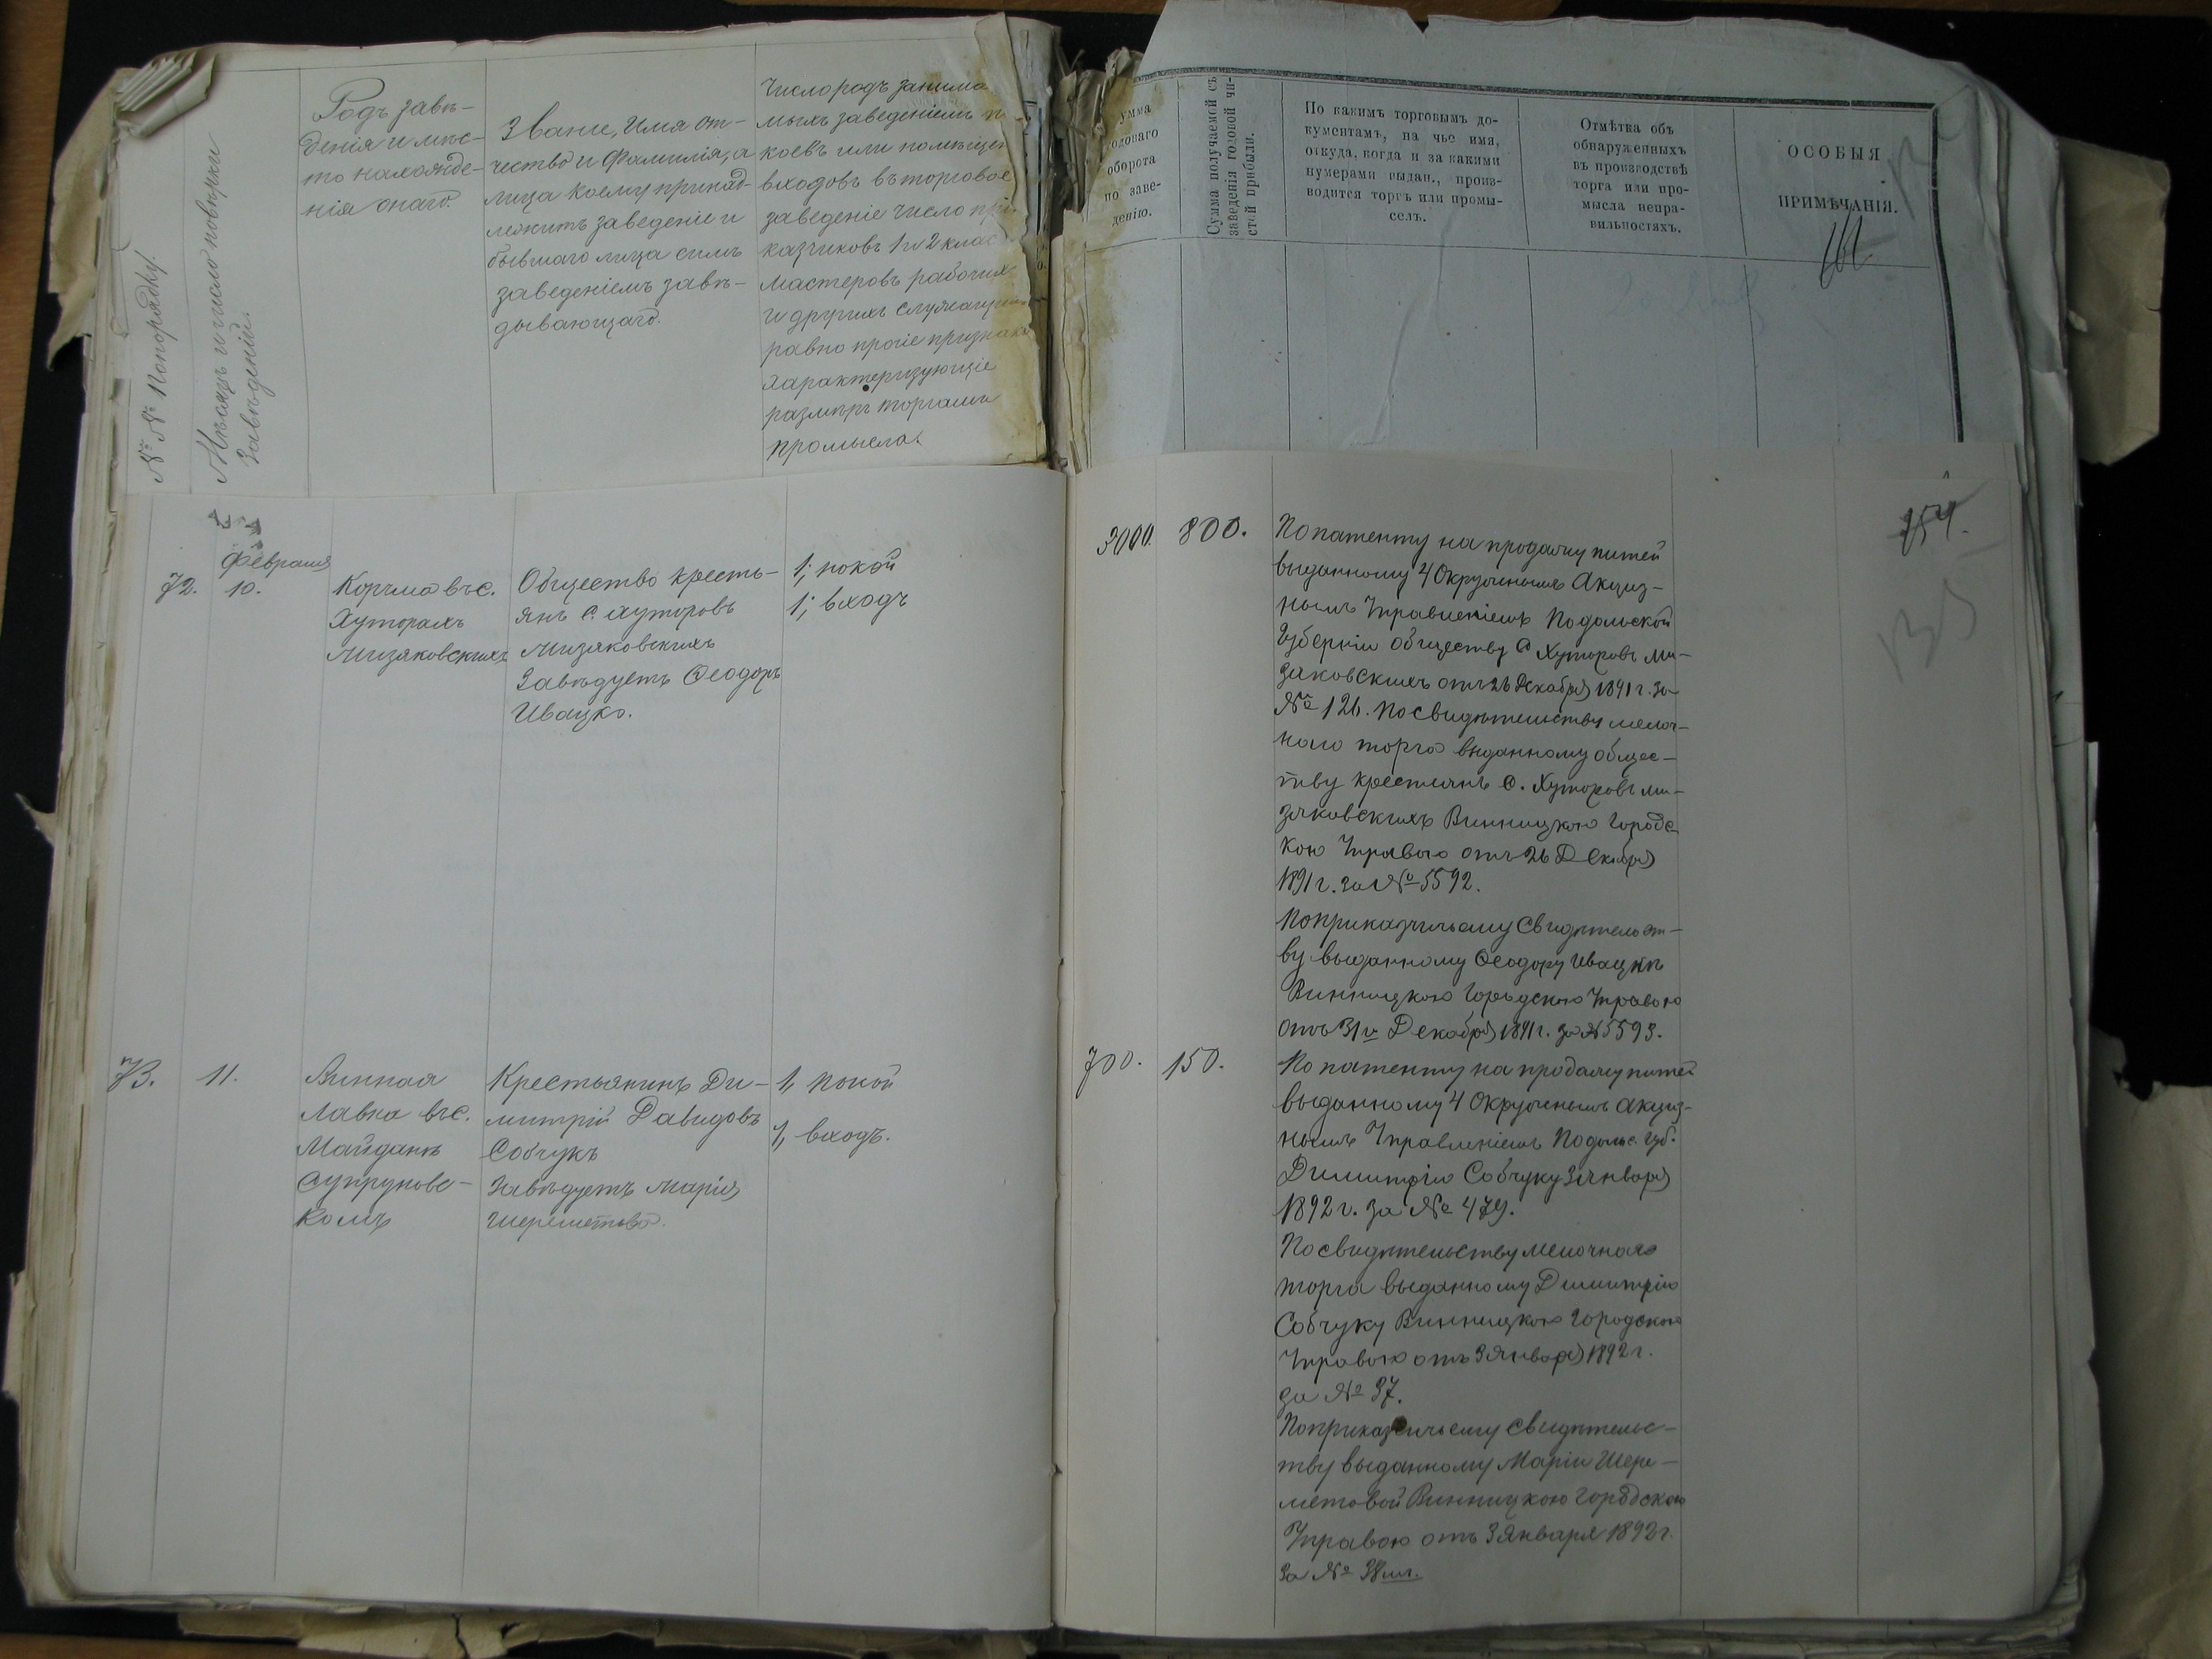 № № По порядку.
Мѣсяцъ и число повѣрки
Заведеній.
Родъ заве-
денія и мѣс-
то нахожде-
нія онаго.
Званіе, Имя От-
чество и Фамилія, а
лица коему принад-
лежитъ заведеніе и
бывшаго лица симъ
заведеніемъ завѣ-
дывающаго.
Число родъ занима
мыхъ заведеніемъ п
коевъ или помѣщен
входовъ въ торговое
заведеніе число при
казчиковъ 1 и 2 клас
мастеровъ рабочихъ
и другихъ служащихъ
равно прочіе признаки
характеризующіе
размѣръ торга или
промысла.
умма
одоваго
оборота
по заве-
денію.
Сумма получаемой съ
заведенія годовой чи-
стой прибыли.
По какимъ торговымъ до-
кументамъ, на чье имя,
откуда, когда и за какими
нумерами выдан., произ-
водится торгъ или промы-
селъ.
Отмѣтка объ
обнаруженныхъ
въ производствѣ
торга или про-
мысла непра-
вильностяхъ.
ОСОБЫЯ
ПРИМѢЧАНІЯ.
72.
Февраля
10.
Корчма въ с.
Хуторахъ
Мизяковскихъ
Общество кресть-
янъ с. Хуторовъ
Мизяковскихъ
Завѣдуетъ Ѳеодоръ
Ивацко.
1; покой
1; входъ
3000. 800.
По патенту на продажу питей
выданному 4 Окружнымъ Акциз-
нымъ Управленіемъ Подольской
Губерніи обществу с Хуторовъ Ми-
зяковскихъ отъ 26 Декабря 1891 г. за
№ 126. По свидѣтельству мелоч-
ного торга выданному общес-
тву крестянъ с. Хуторовъ Ми-
зяковскихъ Винницкою Городс-
кою Управою отъ 26 Декабря
1891 г. за № 5592.
По приказчичьему Свидѣтельст-
ву выданному Ѳеодору Ивацкѣ
Винницкою Городскою Управою
отъ 31го Декабря 1891 г. за № 5593.
154.
135
73. 11.
Винная
лавка въ с.
Майданѣ
Супруновс-
комъ
Крестьянинъ Ди-
митрій Давидовъ
Собчукъ
Завѣдуетъ Марія
Шереметьева.
1, покой
1, входъ.
700. 150.
По патенту на продажу питей
выданному 4 Окружнымъ Акциз-
нымъ Управленіемъ Подольс. Губ.
Димитрію Собчуку 3 января
1892 г. за № 479.
По свидѣтельству мелочнаго
торга выданному Димитрію
Собчуку Винницкою Городскою
Управою отъ 3 Января 1892 г.
за № 37.
По приказчичьему Свидѣтельс-
тву выданному Маріи Шере-
метовой Винницкою Городскою
Управою отъ 3 Января 1892 г.
за № 38